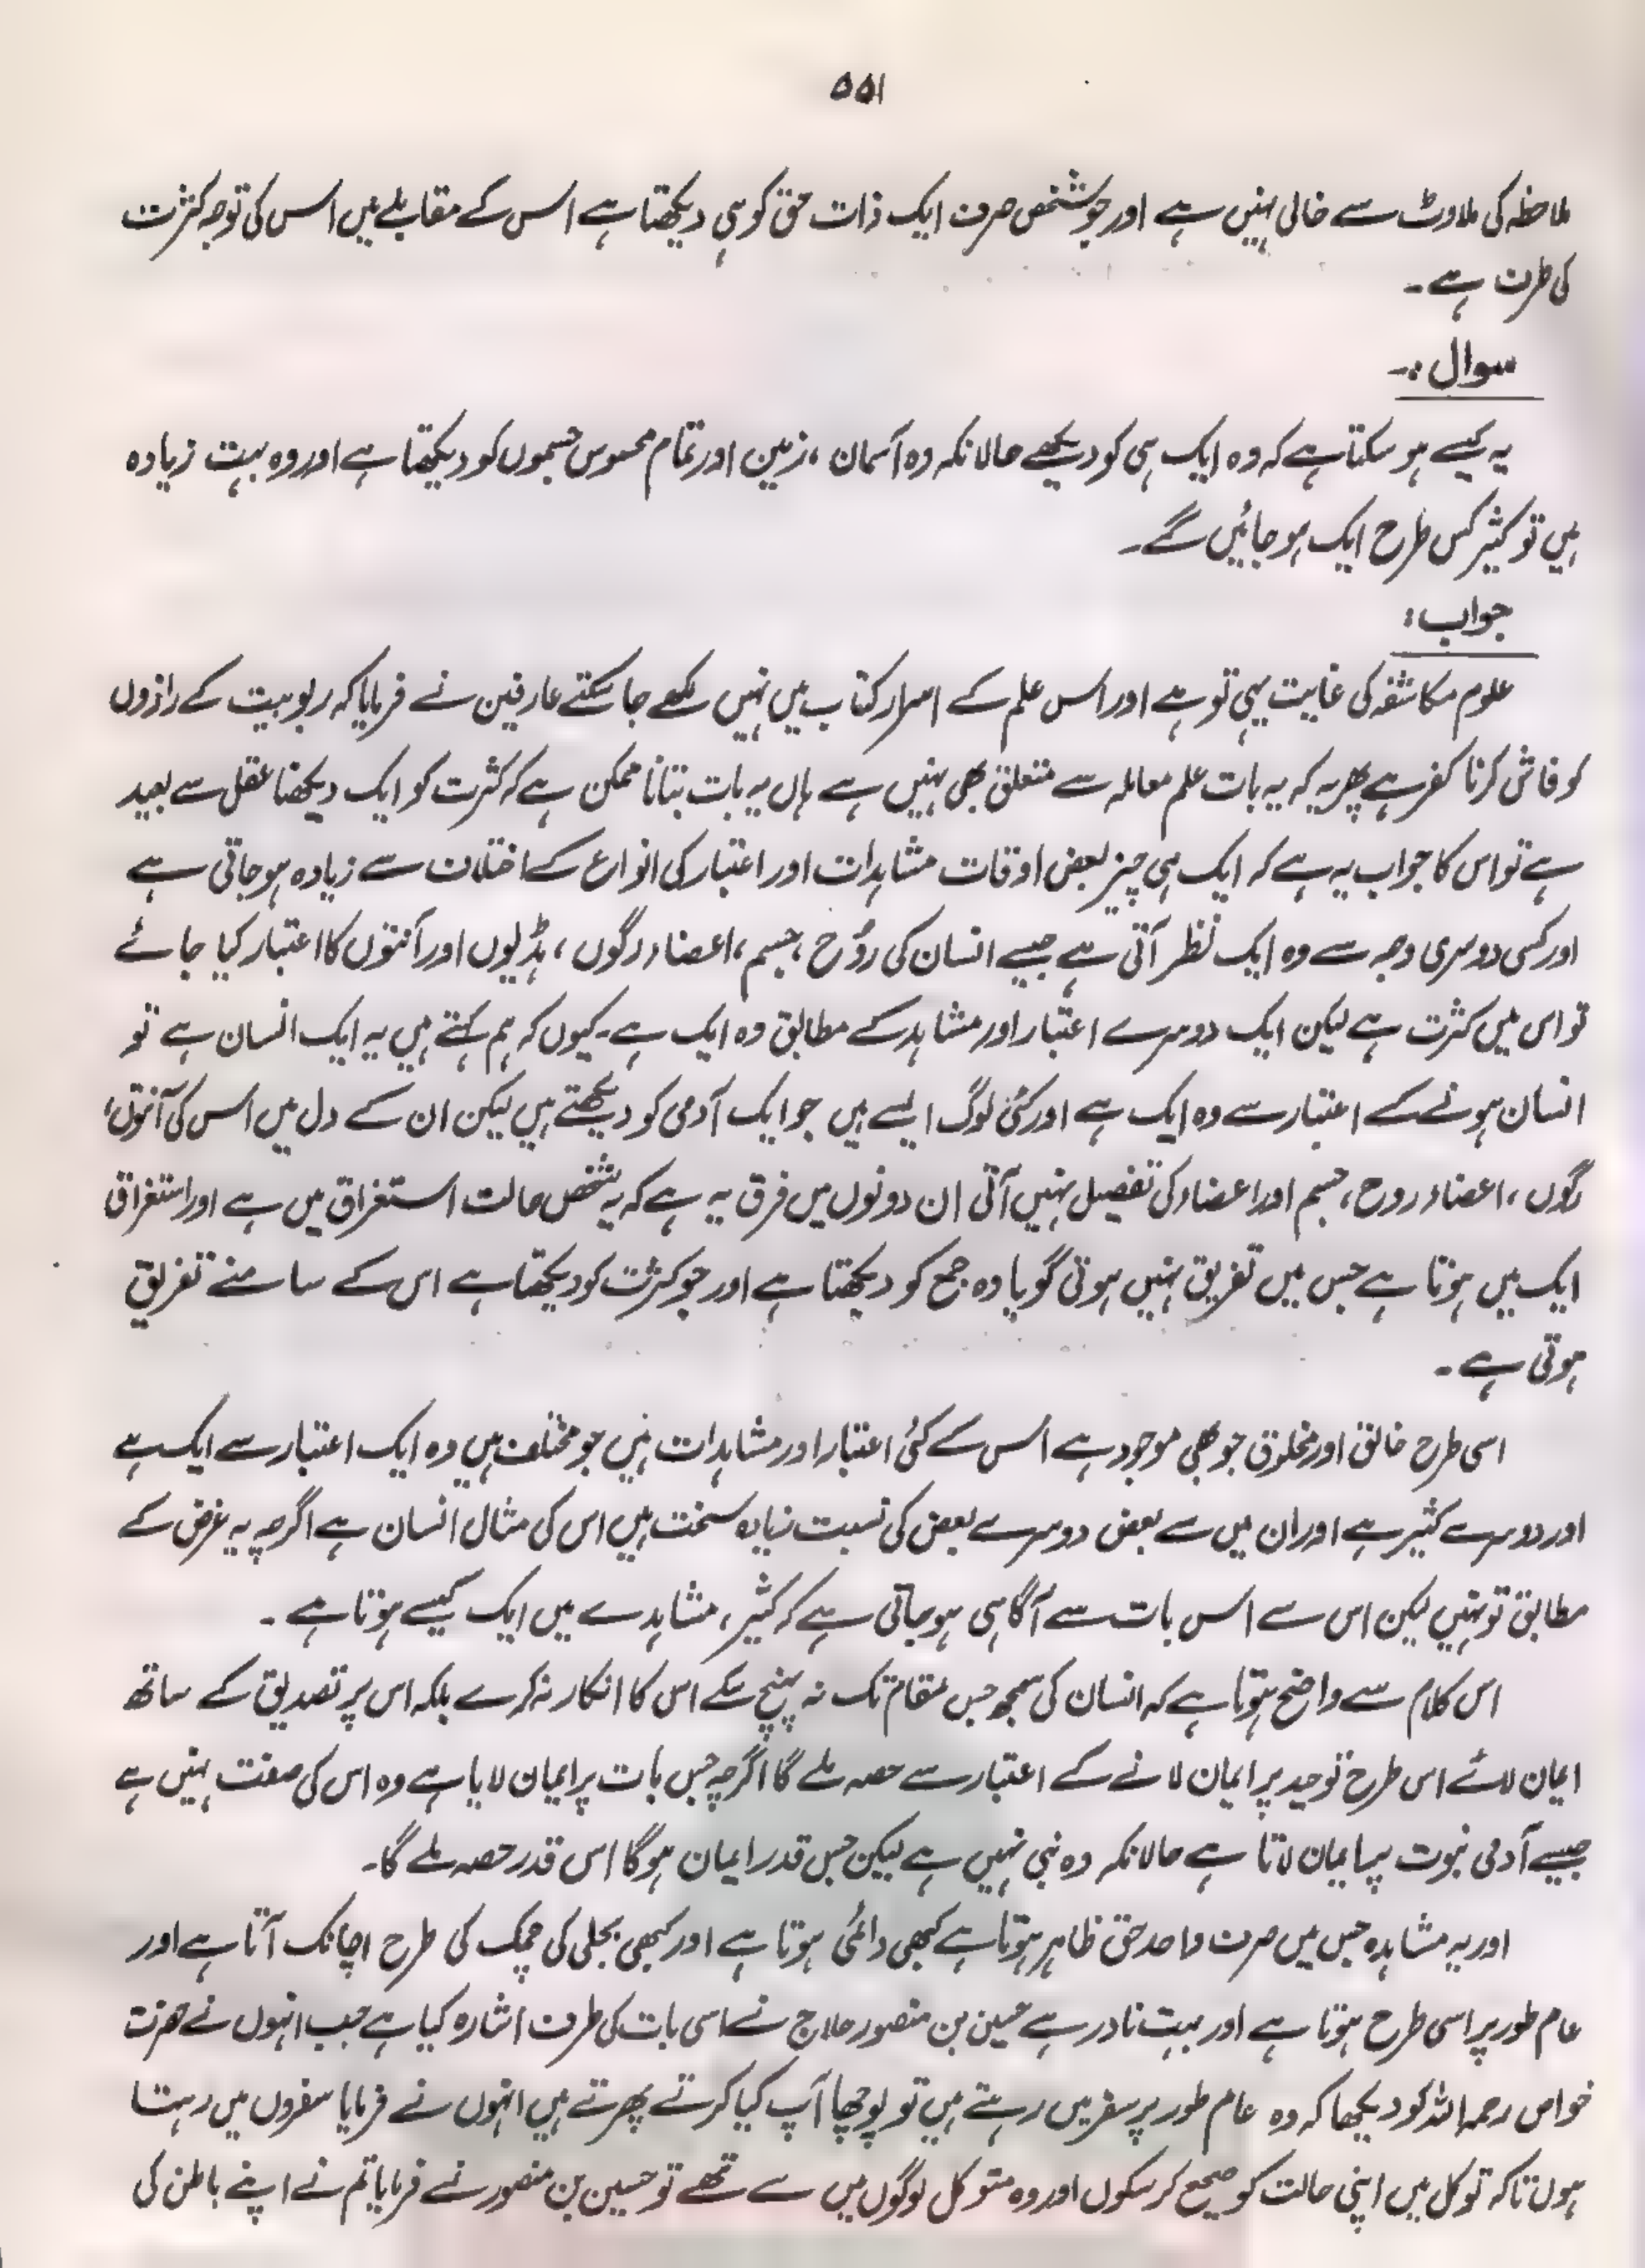 ۵۵۱
ملاحظہ کی ملاوٹ سے خالی نہیں ہے اور جو شخص صرف ایک ذات حق کو ہی دیکھتا ہے اس کے مقابلے میں اس کی توجہ کثرت
کی طرف ہے۔
سوال:۔
یہ کیسے ہو سکتا ہے کہ وہ ایک ہی کو دیکھے حالانکہ وہ آسمان ، زمین اور تمام محسوس جسموں کو دیکھتا ہے اور وہ بہت زیادہ
ہیں تو کثیر کس طرح ایک ہو جائیں گے۔
جواب:
علوم مکاشفہ کی غایت یہی تو ہے اور اس علم کے اسرار کتاب میں نہیں لکھے جا سکتے عارفین نے فرمایا کہ ربوبیت کے رازوں
کو فاش کرنا کفر ہے پھر یہ کہ یہ بات علم معاملہ سے متعلق بھی نہیں ہے ہاں یہ بات بتانا ممکن ہے کہ کثرت کو ایک دیکھنا عقل سے بعید
ہے تو اس کا جواب یہ ہے کہ ایک ہی چیز بعض اوقات مشاہدات اور اعتبار کی انواع کے اختلاف سے زیادہ ہو جاتی ہے
اور کسی دوسری وجہ سے وہ ایک نظر آتی ہے جیسے انسان کی رُوح ، جسم ، اعضاء رگوں ، ہڈیوں اور آنتوں کا اعتبار کیا جائے
تو اس میں کثرت ہے لیکن ایک دوسرے اعتبار اور مشاہد کے مطابق وہ ایک ہے۔ کیوں کہ ہم کہتے ہیں یہ ایک انسان ہے تو
انسان ہونے کے اعتبار سے وہ ایک ہے اور کئی لوگ ایسے ہیں جو ایک آدمی کو دیکھتے ہیں لیکن ان کے دل میں اس کی آنتوں،
رگوں ، اعضاء روح ، جسم اور اعضاء کی تفصیل نہیں آتی ان دونوں میں فرق یہ ہے کہ یہ شخص حالت استغراق میں ہے اور استغراق
ایک میں ہوتا ہے جس میں تفریق نہیں ہوتی گویا وہ جمع کو دیکھتا ہے اور جو کثرت کو دیکھتا ہے اس کے سامنے تفریق
ہوتی ہے۔
اسی طرح خالق اور مخلوق جو بھی موجود ہے اس کے کئی اعتبار اور مشاہدات ہیں جو مختلف ہیں وہ ایک اعتبار سے ایک ہے
اور دوسرے کثیر ہے اور ان میں سے بعض دوسرے بعض کی نسبت زیادہ سخت ہیں اس کی مثال انسان ہے اگرچہ یہ غرض کے
مطابق تو نہیں لیکن اس سے اس بات سے آگاہی ہو جاتی ہے کہ کثیر ، مشاہدے میں ایک کیسے ہوتا ہے۔
اس کلام سے واضح ہوتا ہے کہ انسان کی سمجھ جس مقام تک نہ پہنچ سکے اس کا انکار نہ کرے بلکہ اس پر تصدیق کے ساتھ
ایمان لائے اس طرح توحید پر ایمان لانے کے اعتبار سے حصہ ملے گا اگرچہ جس بات پر ایمان لایا ہے وہ اس کی صفت نہیں ہے
جیسے آدمی نبوت پر ایمان لاتا ہے حالانکہ وہ نبی نہیں ہے لیکن جس قدر ایمان ہوگا اس قدر حصہ ملے گا۔
اور یہ مشاہدہ جس میں صرف واحد حق ظاہر ہوتا ہے کبھی دائمی ہوتا ہے اور کبھی بجلی کی چمک کی طرح اچانک آتا ہے اور
عام طور پر اسی طرح ہوتا ہے اور بہت نادر ہے حسین بن منصور حلاج نے اسی بات کی طرف اشارہ کیا ہے جب انہوں نے حضرت
خواص رحمہ اللہ کو دیکھا کہ وہ عام طور پر سفر میں رہتے ہیں تو پوچھا آپ کیا کرتے پھرتے ہیں انہوں نے فرمایا سفروں میں رہتا
ہوں تاکہ توکل میں اپنی حالت کو صحیح کر سکوں اور وہ متوکل لوگوں میں سے تھے تو حسین بن منصور نے فرمایا تم نے اپنے باطن کی